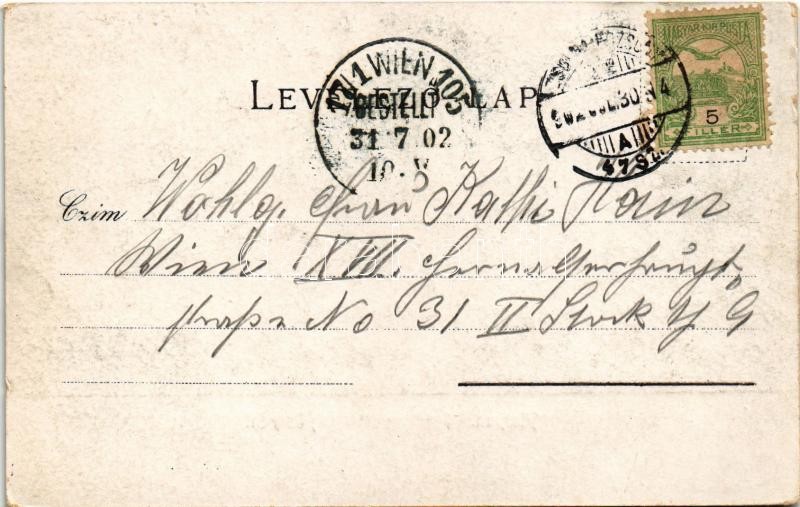 MAGYAR KIR. POSTA
5
FILLER
17/1 WIEN 105
BESTELLT
31 7 02
10. V
902 JUL 30 N 4
A
LEVELEZŐ-LAP
Czim Wohlg. Frau Kathi
Wien XVII. Hernalserhaupt-
straße No 31 II Stock T 9